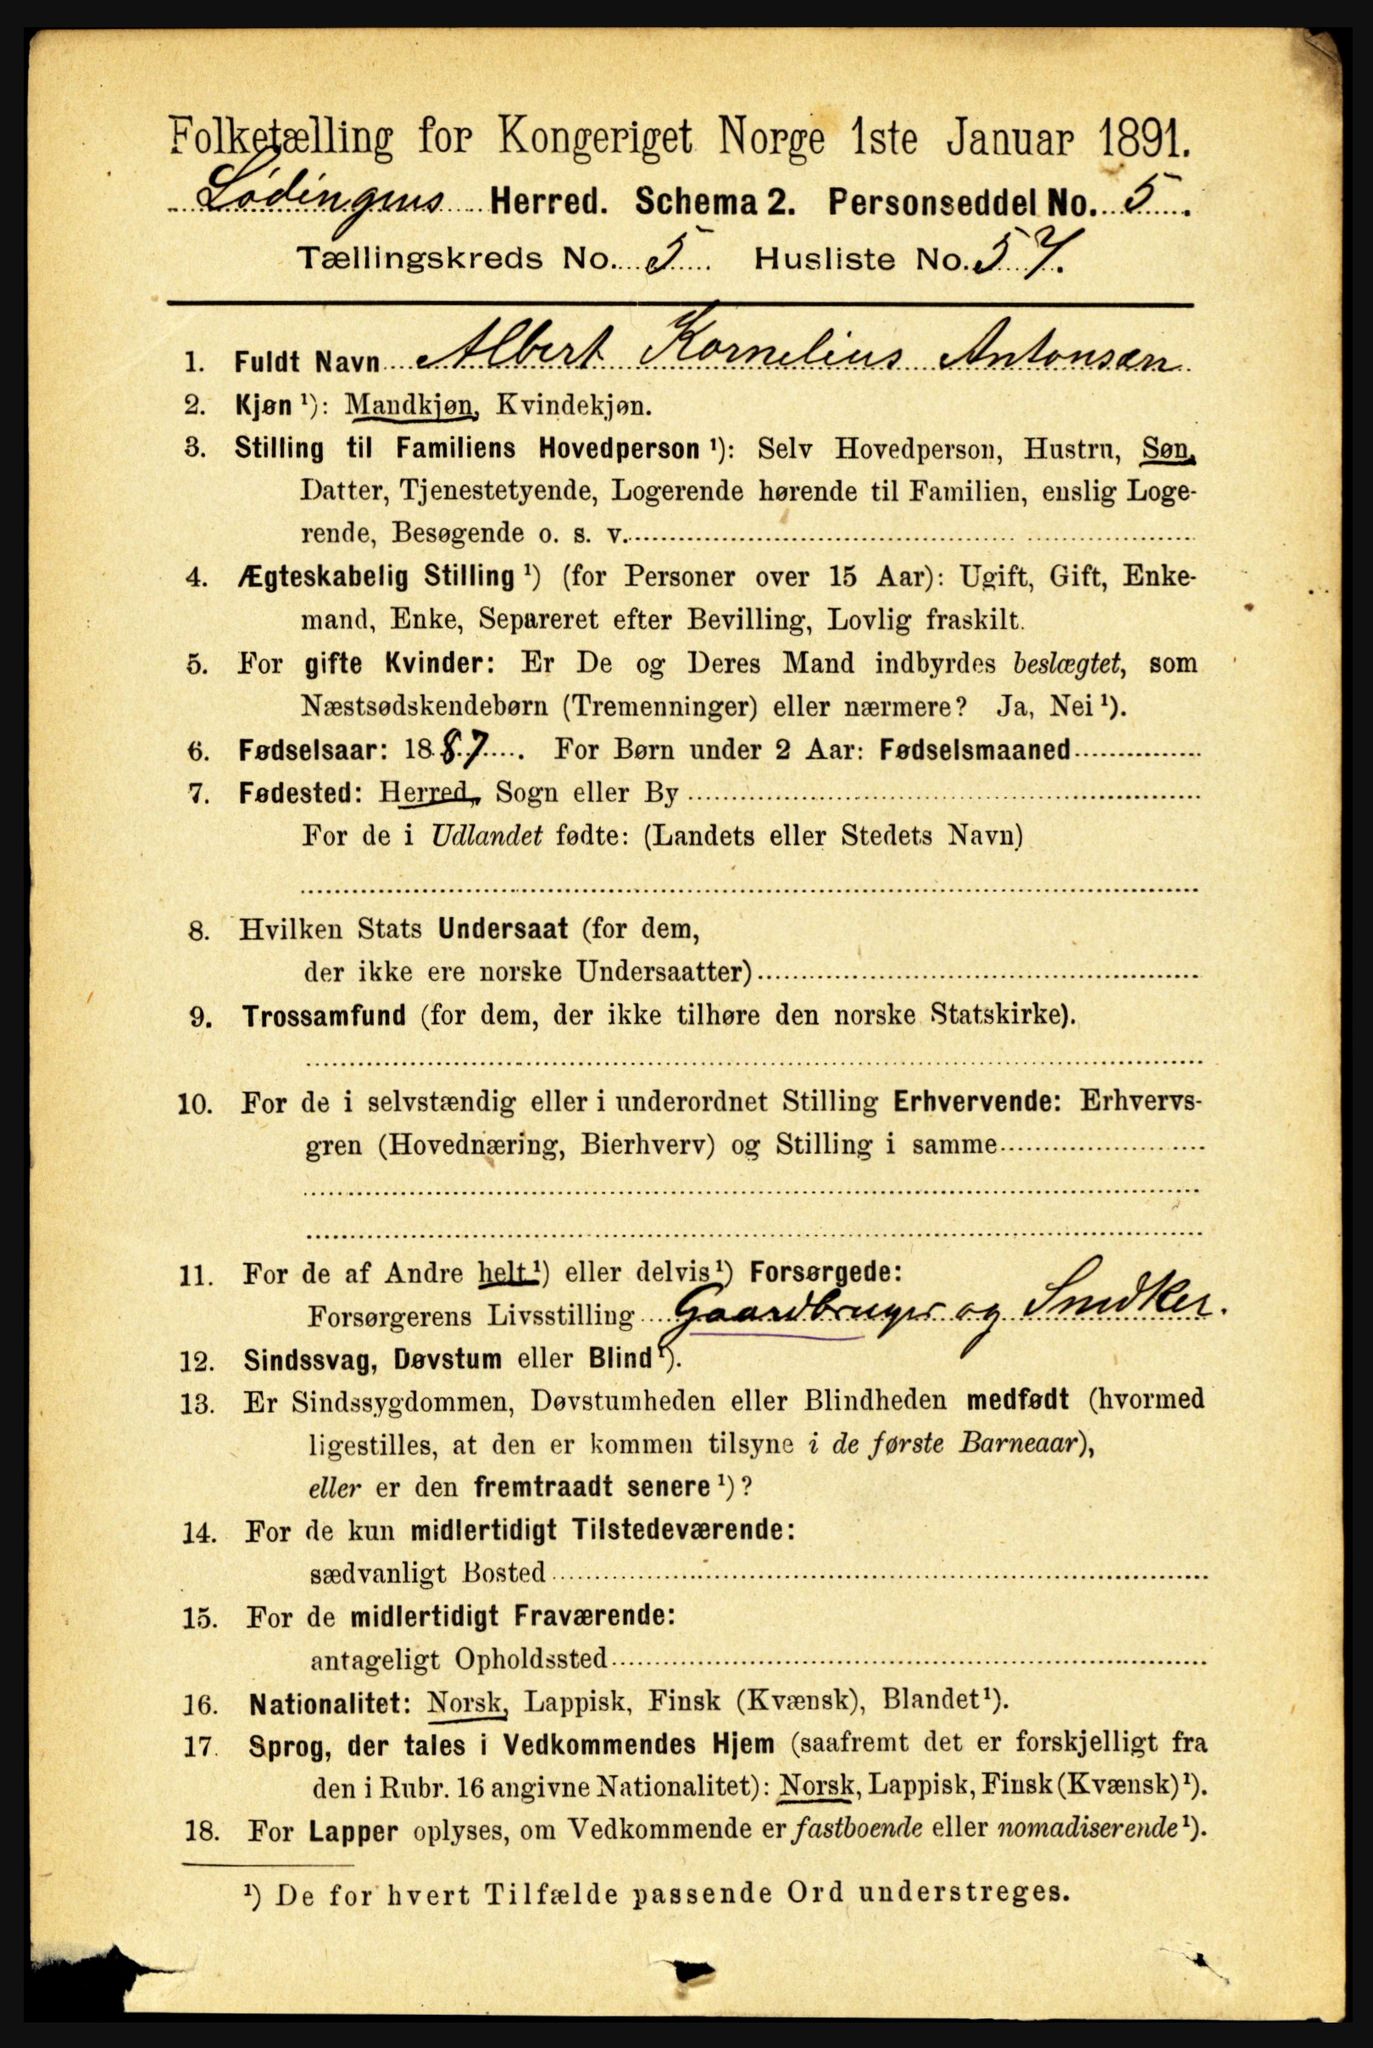 Folketælling for Kongeriget Norge 1ste Januar 1891.
Lødingens Herred. Schema 2. Personseddel No. 5.
Tællingskreds No. 5 Husliste No. 57.
1. Fuldt Navn Albert Kornelius Antonsen
2. Kjøn ¹): Mandkjøn, Kvindekjøn.
3. Stilling til Familiens Hovedperson ¹): Selv Hovedperson, Hustru, Søn,
Datter, Tjenestetyende, Logerende hørende til Familien, enslig Loge-
rende, Besøgende o. s. v.
4. Ægteskabelig Stilling ¹) (for Personer over 15 Aar): Ugift, Gift, Enke-
mand, Enke, Separeret efter Bevilling, Lovlig fraskilt.
5. For gifte Kvinder: Er De og Deres Mand indbyrdes beslægtet, som
Næstsødskendebørn (Tremenninger) eller nærmere? Ja, Nei ¹).
6. Fødselsaar: 1887. For Børn under 2 Aar: Fødselsmaaned
7. Fødested: Herred, Sogn eller By
For de i Udlandet fødte: (Landets eller Stedets Navn)
8. Hvilken Stats Undersaat (for dem,
der ikke ere norske Undersaatter)
9. Trossamfund (for dem, der ikke tilhøre den norske Statskirke).
10. For de i selvstændig eller i underordnet Stilling Erhvervende: Erhvervs-
gren (Hovednæring, Bierhverv) og Stilling i samme
11. For de af Andre helt ¹) eller delvis ¹) Forsørgede:
Forsørgerens Livsstilling Gaardbruger og Snedker.
12. Sindssvag, Døvstum eller Blind ¹).
13. Er Sindssygdommen, Døvstumheden eller Blindheden medfødt (hvormed
ligestilles, at den er kommen tilsyne i de første Barneaar),
eller er den fremtraadt senere ¹)?
14. For de kun midlertidigt Tilstedeværende:
sædvanligt Bosted
15. For de midlertidigt Fraværende:
antageligt Opholdssted
16. Nationalitet: Norsk, Lappisk, Finsk (Kvænsk), Blandet ¹).
17. Sprog, der tales i Vedkommendes Hjem (saafremt det er forskjelligt fra
den i Rubr. 16 angivne Nationalitet): Norsk, Lappisk, Finsk (Kvænsk) ¹).
18. For Lapper oplyses, om Vedkommende er fastboende eller nomadiserende ¹).
¹) De for hvert Tilfælde passende Ord understreges.